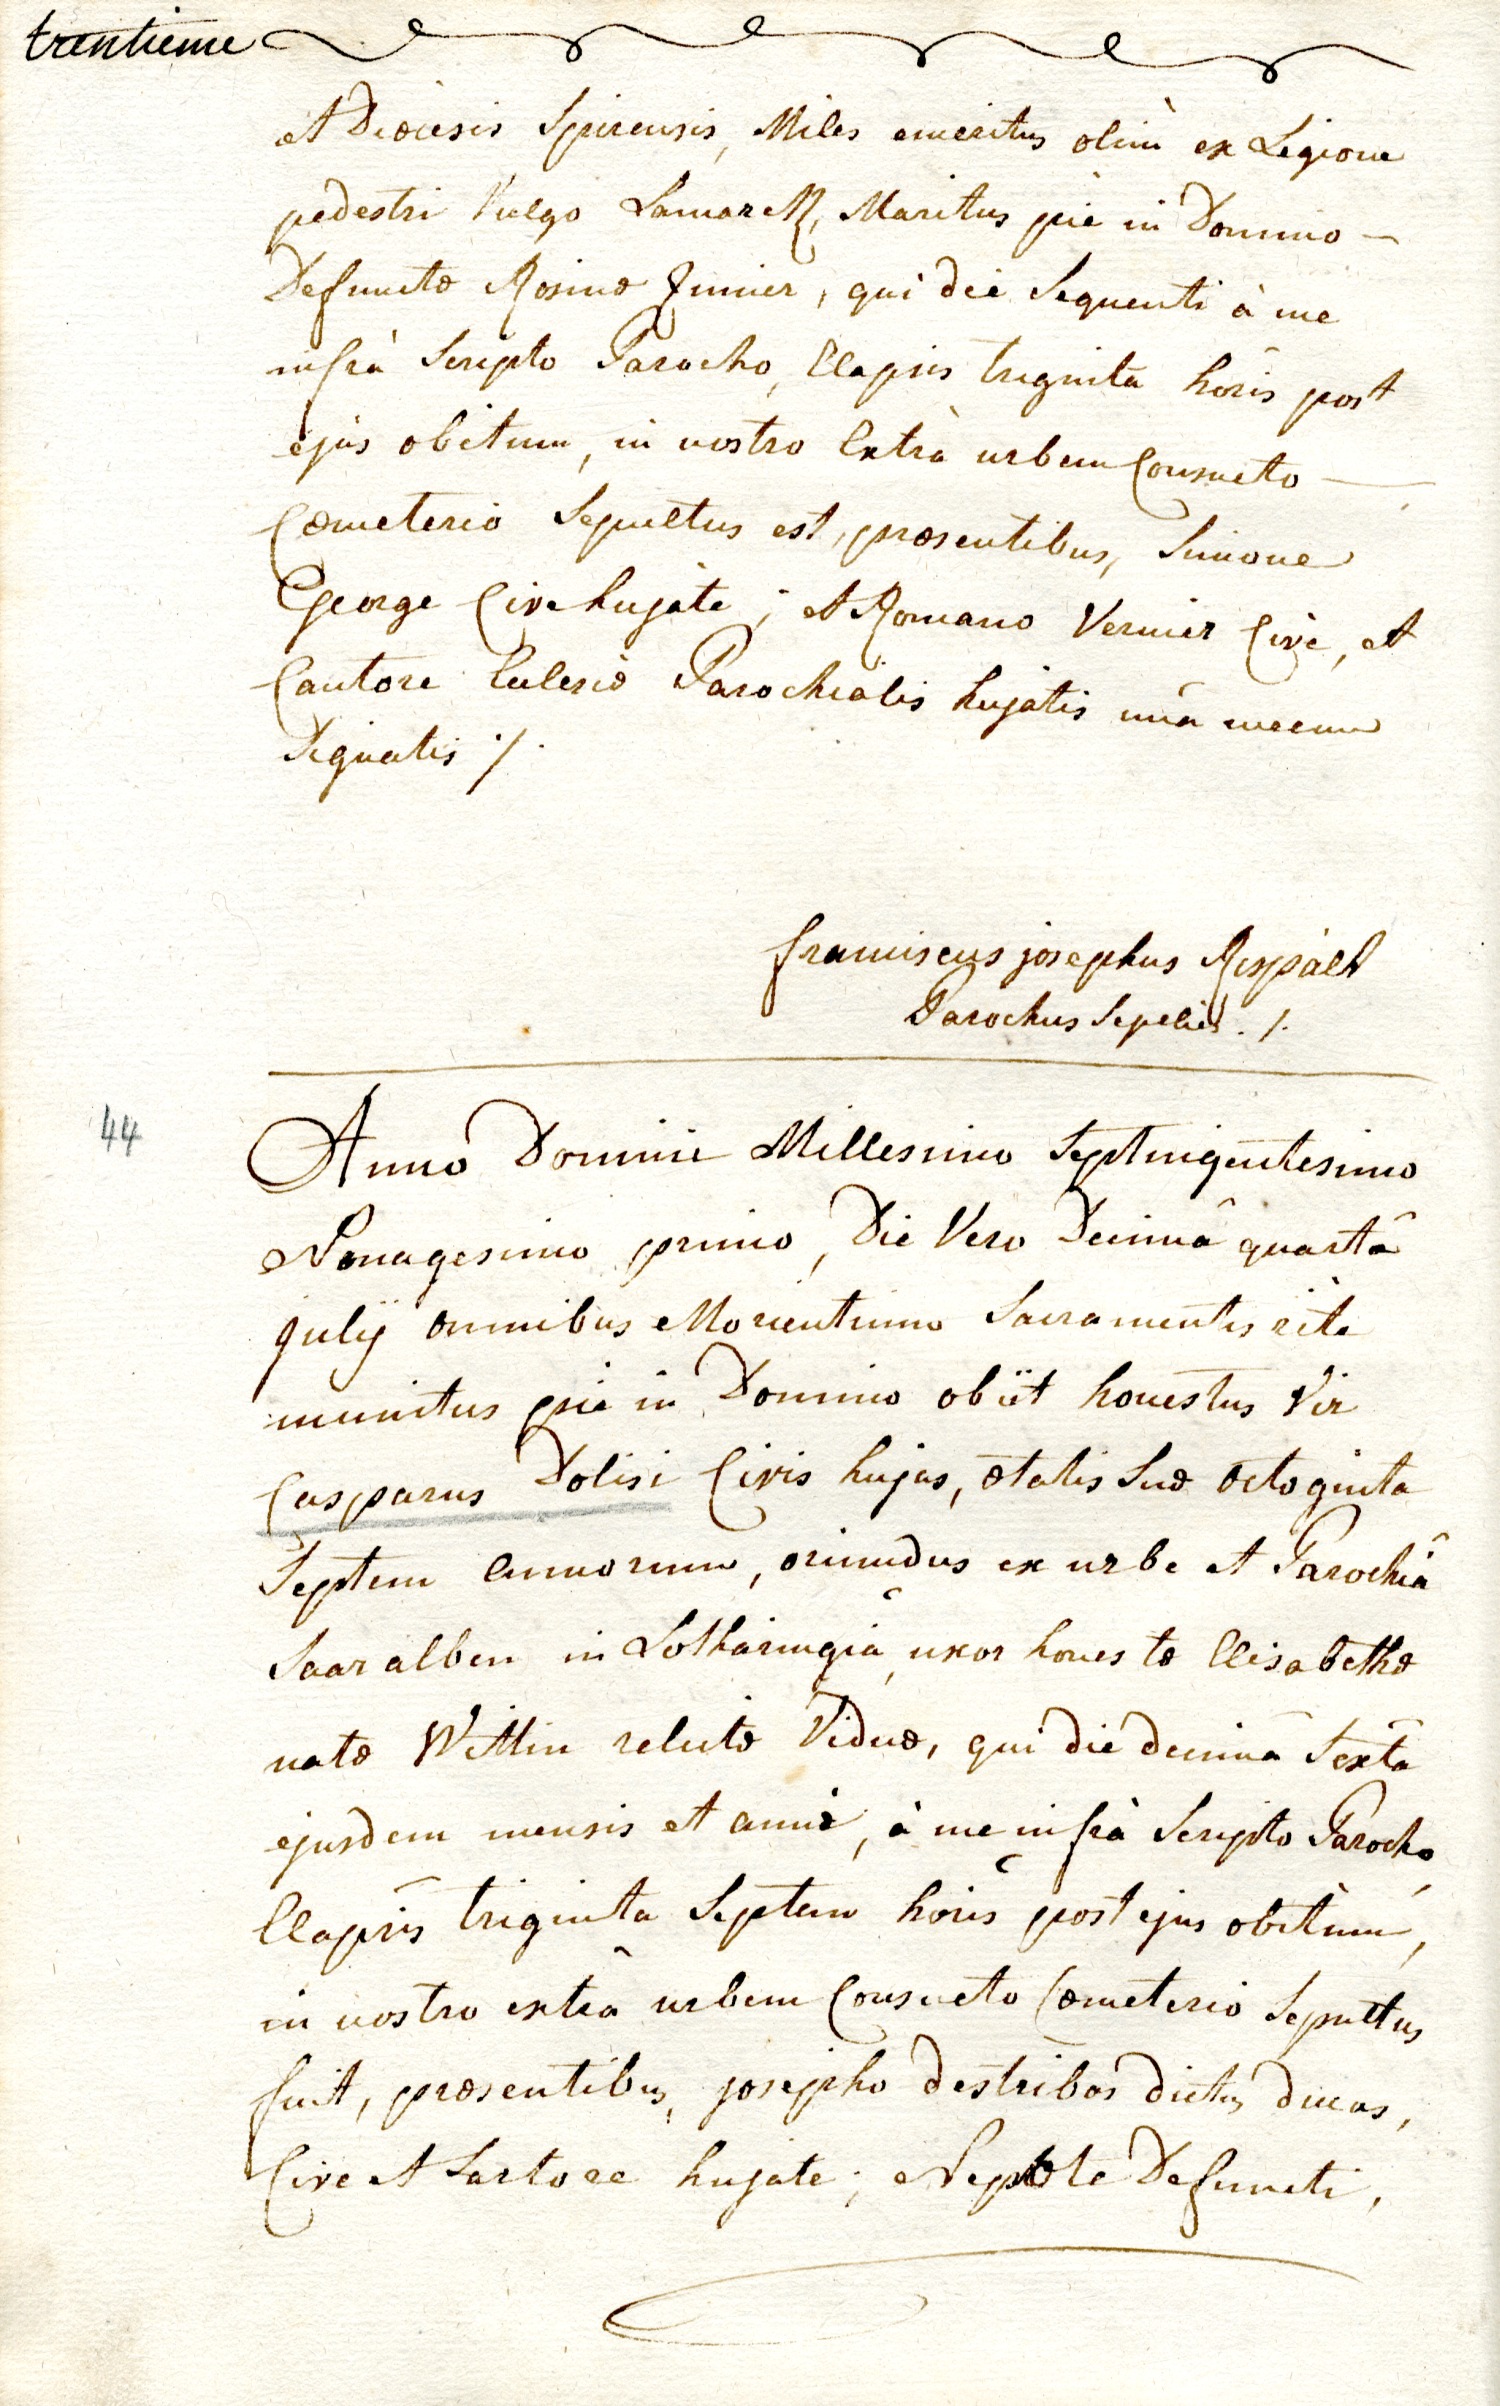 trentieme
et Diœcesis Spirensis, Miles emeritus olim ex Legione
pedestri Vulgo Lamarck, Maritus piè in Domino —
Defunctæ Rosinæ Zimier, qui die Sequenti à me
infrà Scripto Parocho, Elapsis triginta horis post
ejus obitum, in nostro Extrà urbem Consueto —
Cœmeterio Sepultus est, præsentibus, Simone
George Cive hujate; et Romano Vernier Cive, et
Cantore Ecclesiæ Parochialis hujatis unà mecum
Signatis ./.
franciscus josephus Rispalt
Parochus Sepelivit ./.
44
Anno Domini Millesimo Septingentesimo
Nonagesimo primo, Die Vero Decimâ quartâ
julij omnibus Morientium Sacramentis rite
munitus piè in Domino obiit honestus Vir
Casparus Dolisi Civis hujas, ætatis Suæ octoginta
Septem annorum, oriundus ex urbe et Parochiâ
Saaralben in Lotharingiâ, uxor honestæ Elisabethæ
natæ Wittin relictæ Viduæ, qui die decimâ Sextâ
ejusdem mensis et anni, à me infrà Scripto Parocho,
Elapsis triginta Septem horis post ejus obitum,
in nostro extrâ urbem Consueto Cœmeterio Sepultus
fuit, præsentibus, josepho destribos dictus ducas,
Cive et Sartore hujate; Nepote Defuncti,